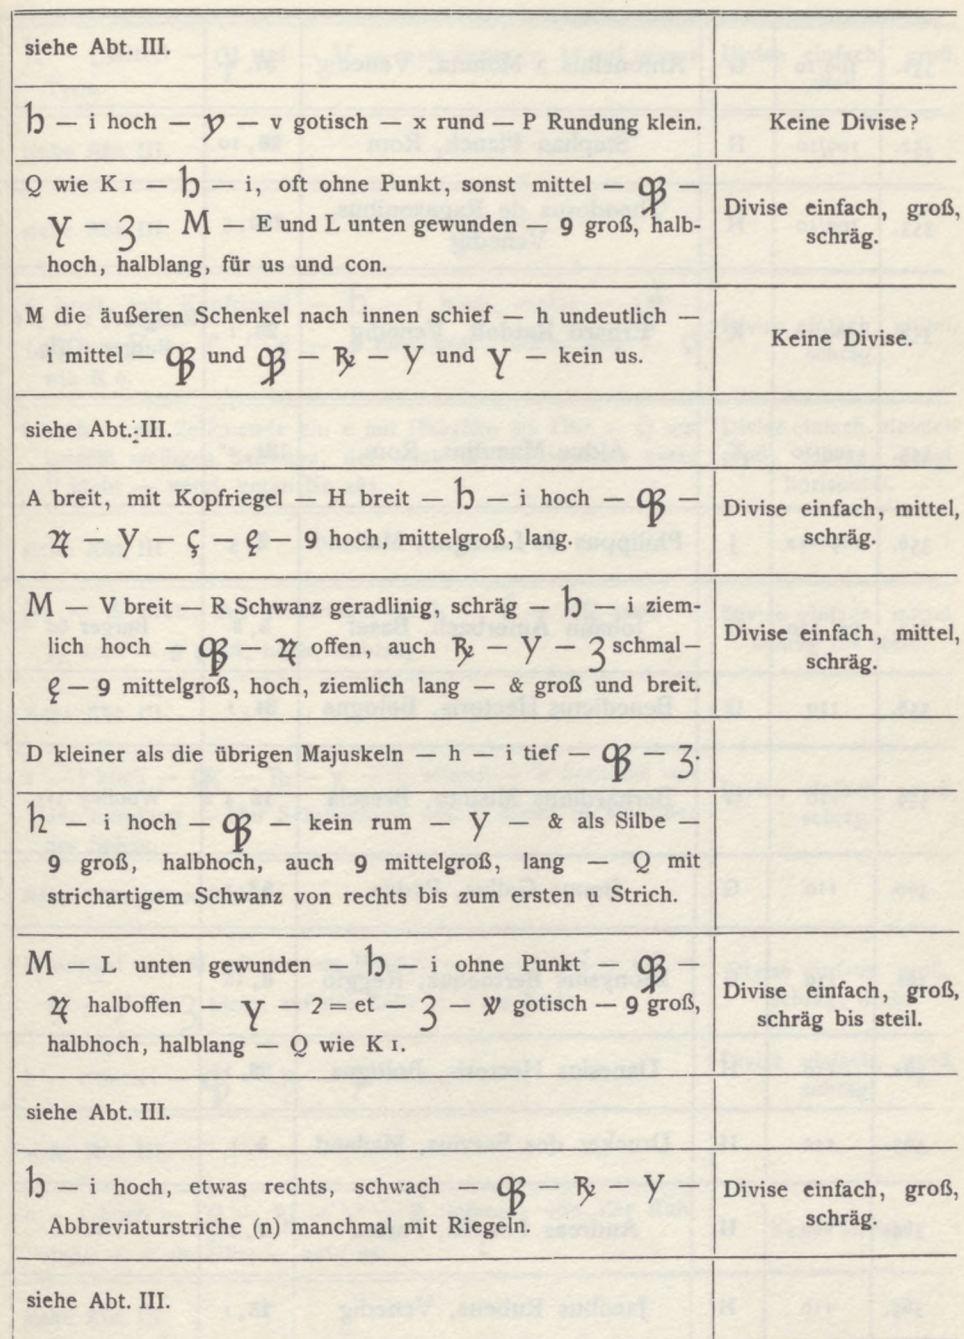 siehe Abt. III.
h — i hoch — y — v gotisch — x rund — P Rundung klein.
Keine Divise?
Q wie K 1 — h — i, oft ohne Punkt, sonst mittel — —
Y — 3 — M — E und L unten gewunden — 9 groß, halb-
hoch, halblang, für us und con.
Divise einfach, groß,
schräg.
M die äußeren Schenkel nach innen schief — h undeutlich —
i mittel — und — — Y und Y — kein us.
Keine Divise.
siehe Abt. III.
A breit, mit Kopfriegel — H breit — h — i hoch — —
— Y — ç — — 9 hoch, mittelgroß, lang.
Divise einfach, mittel,
schräg.
M — V breit — R Schwanz geradlinig, schräg — h — i ziem-
lich hoch — — offen, auch — Y — 3 schmal —
— 9 mittelgroß, hoch, ziemlich lang — & groß und breit.
Divise einfach, mittel,
schräg.
D kleiner als die übrigen Majuskeln — h — i tief — — 3.
h — i hoch — — kein rum — Y — & als Silbe —
9 groß, halbhoch, auch 9 mittelgroß, lang — Q mit
strichartigem Schwanz von rechts bis zum ersten u Strich.
M — L unten gewunden — h — i ohne Punkt — —
halboffen — Y — 2 = et — 3 — gotisch — 9 groß,
halbhoch, halblang — Q wie K 1.
Divise einfach, groß,
schräg bis steil.
siehe Abt. III.
h — i hoch, etwas rechts, schwach — — — Y —
Abbreviaturstriche (n) manchmal mit Riegeln.
Divise einfach, groß,
schräg.
siehe Abt. III.